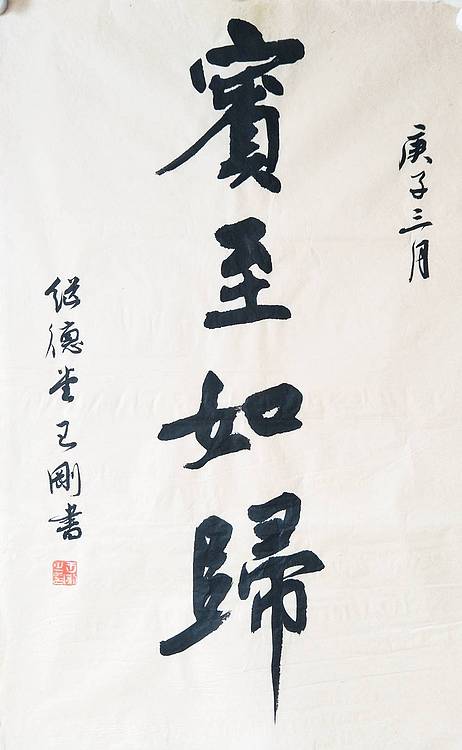 庚子三月
賓至如歸
继德堂王剛書